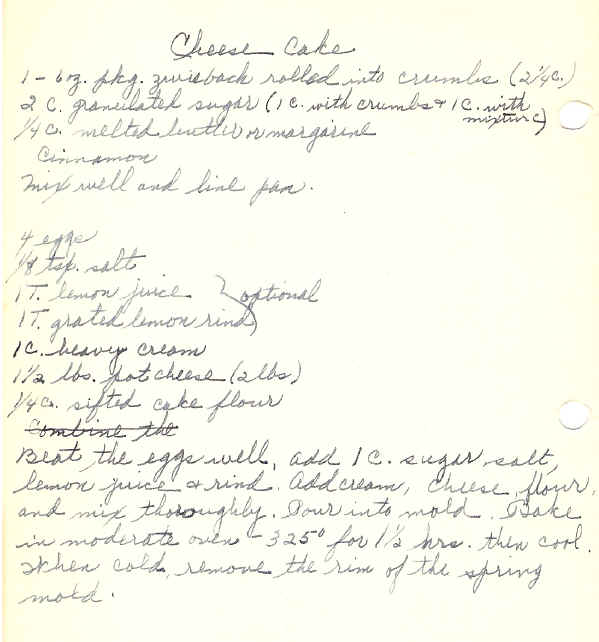 Cheese Cake
1 - 6 oz. pkg. zwieback rolled into crumbs (2 1/4 c.)
2 C. granulated sugar (1 C. with crumbs + 1 C. with
mixture)
1/4 c. melted butter or margarine
Cinnamon
Mix well and line pan.
4 eggs
1/8 tsp. salt
1 T. lemon juice } optional
1 T. grated lemon rind
1 C. heavy cream
1 1/2 lbs. pot cheese (2 lbs)
1/4 c. sifted cake flour
Combine the
Beat the eggs well, add 1 C. sugar, salt,
lemon juice & rind. Add cream, cheese, flour,
and mix thoroughly. Pour into mold. Bake
in moderate oven - 325° for 1 1/2 hrs. then cool.
When cold, remove the rim of the spring
mold.